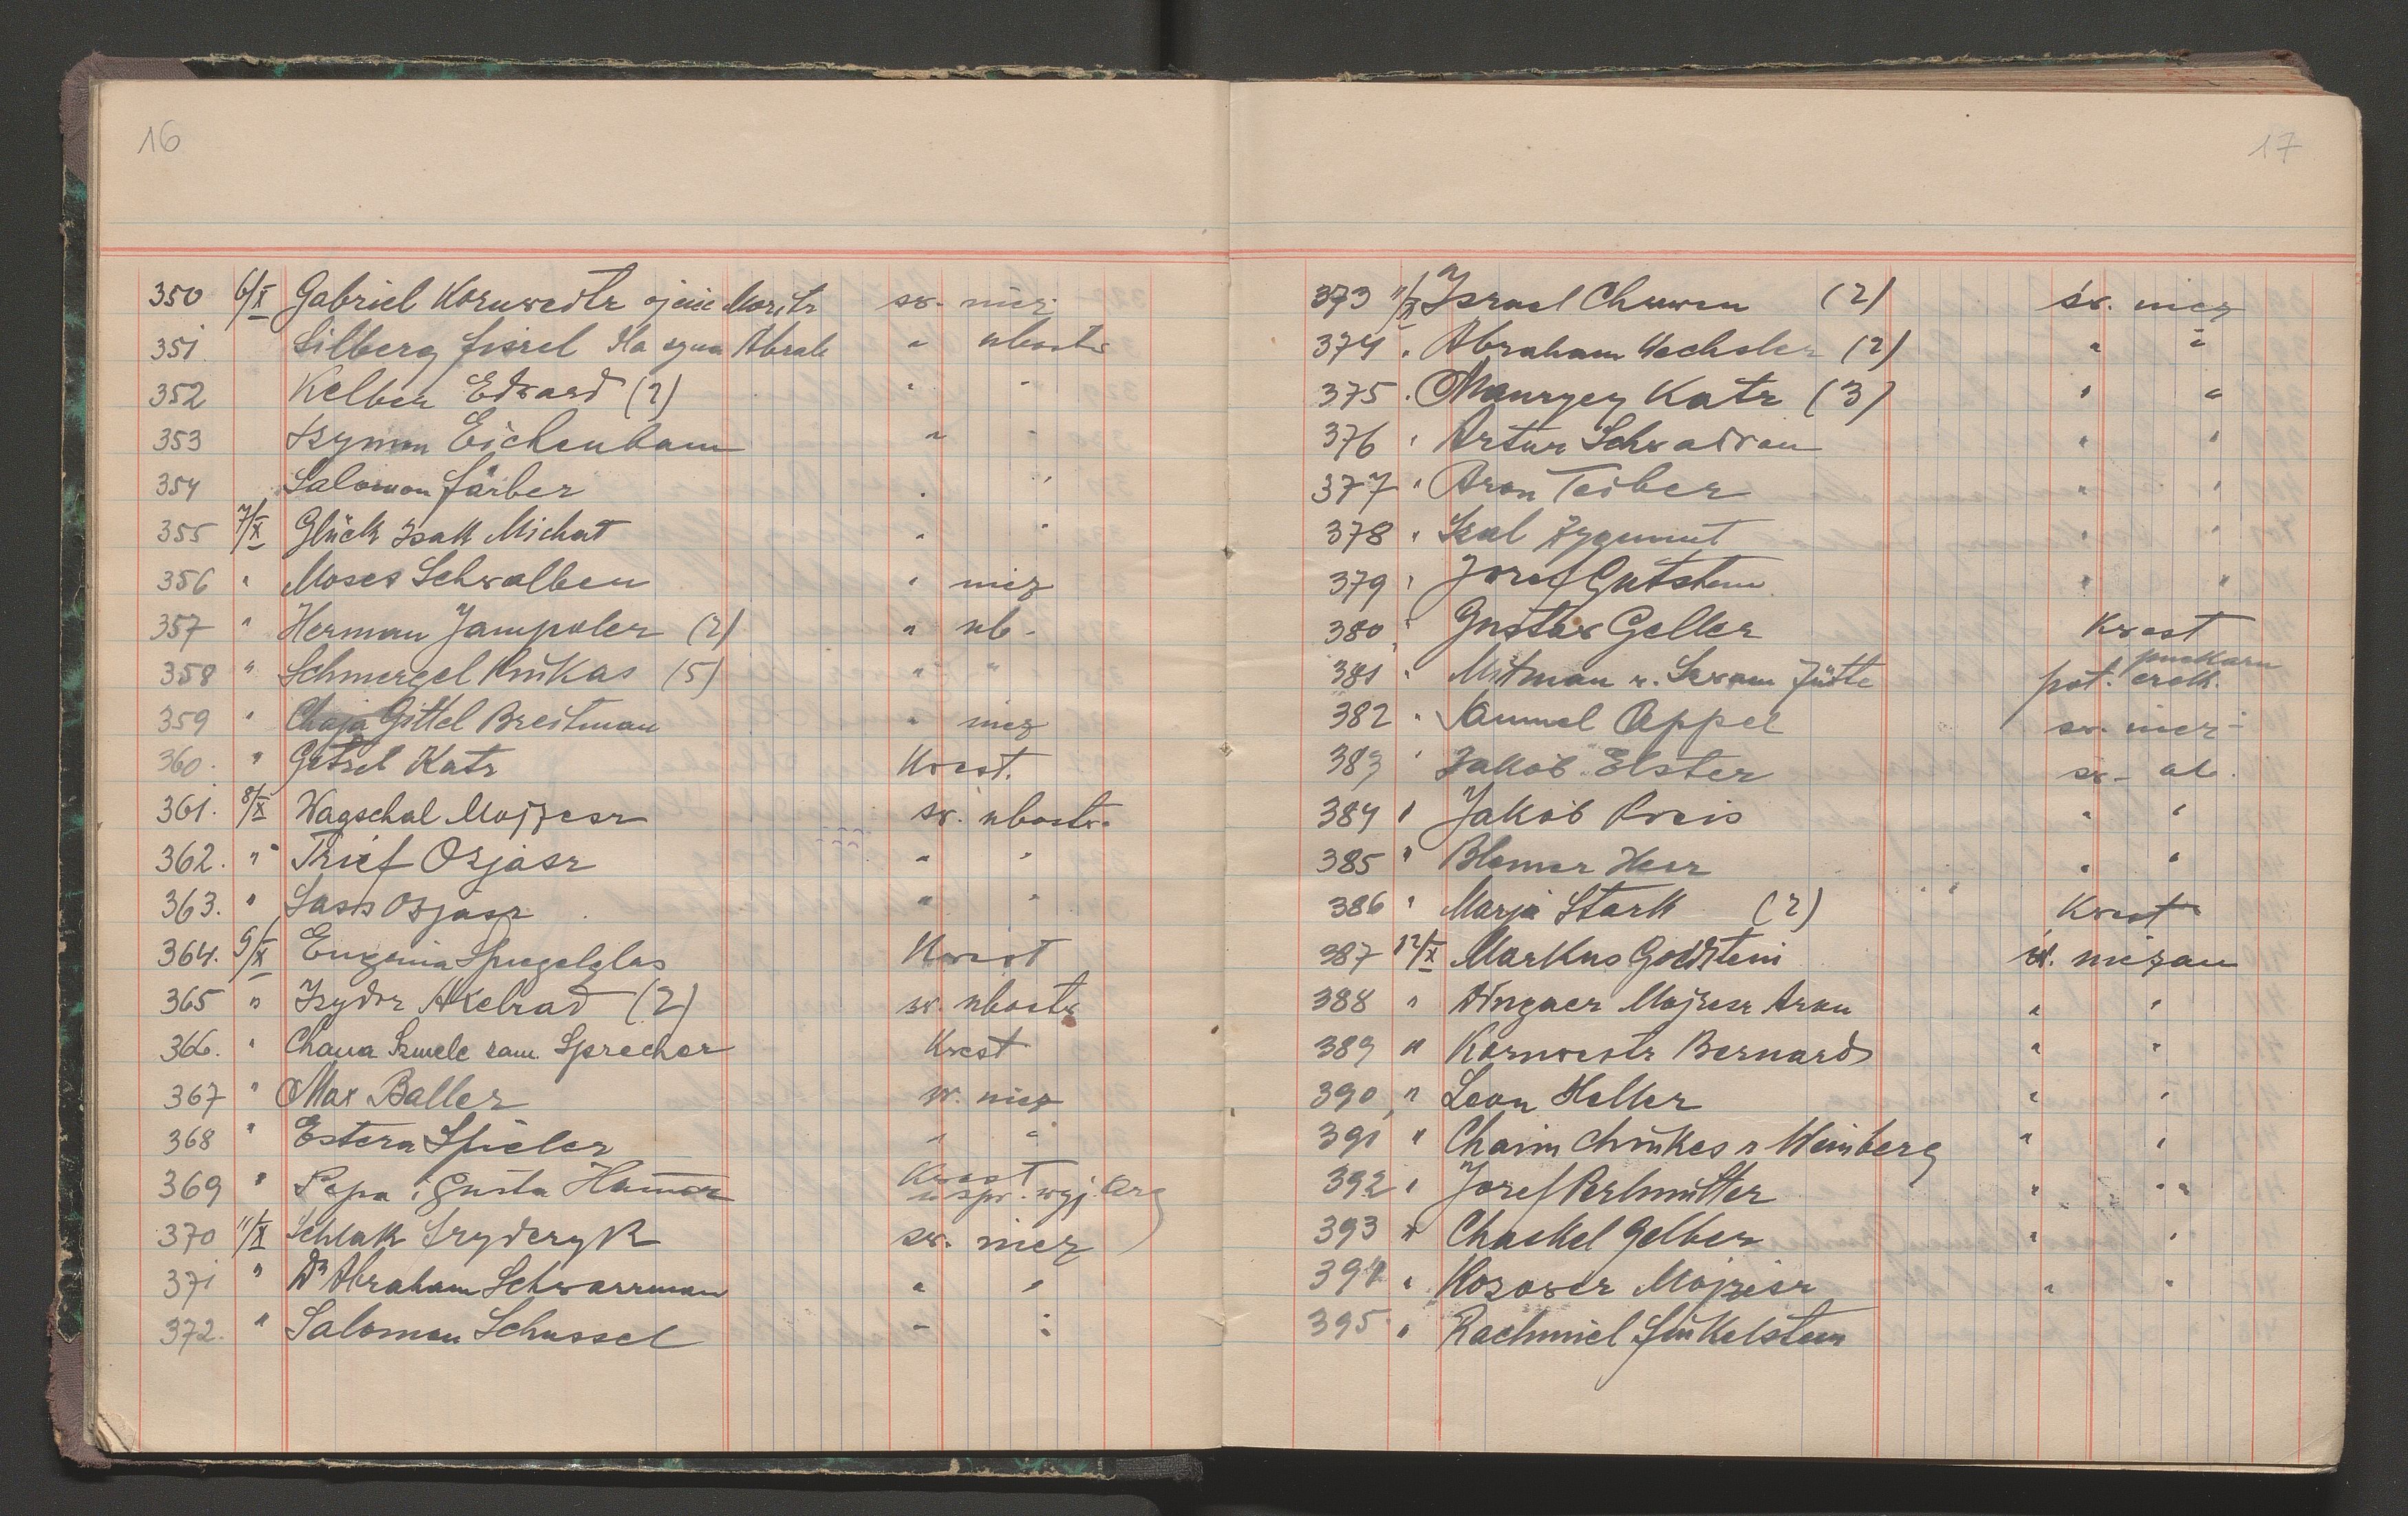 16
350 6/X Gabriel Kornweitz ojciec Moritz św. niez.
351 Silberg Fisrel dla syna Abrah " ubostw
352 Kelber Edward (2) " "
353 Szymon Eichenbaum " "
354 Salomon Färber " "
355 7/X Glück Izak Michał " "
356 " Moses Schwalben " niez
357 " Herman Jampoler (2) " ub.
358 " Schmergel Pinkas (5) " "
359 " Chaja Gittel Breitman " niez
360. " Getzel Katz Kwest.
361. 8/X Wagschal Mojżesz św. ubostw.
362. " Trief Ozjasz " "
363. " Sass Ozjasz " "
364. 9/X Eugenia Spiegelglas Kwest
365 " Izydor Axelrad (2) św. ubostw
366. " Chana Szmele zam. Sprecher Kwest
367 " Max Baller św. niez
368 " Estera Spieler " "
369 " Pepa i Gusta Hamer Kwest
w spr. wyj. Arg
370 11/X Schlak Fryderyk św. niez
371 " Dr Abraham Schwarzman " "
372. " Salomon Schussel " "
17
373 11/X Israel Chuwen (2) św. niez
374 " Abraham Wechsler (2) " "
375 " Maurycy Katz (3) " "
376 " Artur Schwadron " "
377 " Aron Teiber " "
378 " Szal Zygmunt " "
379 " Józef Gutstein " "
380 " Gustaw Geller Kwest
381 " Mitman v. Szwam Jütte pot. erek.
382 " Samuel Appel św. niez
383 " Jakób Elster św. ub.
384 " Jakób Preis " "
385 " Blemer Hesz " "
386 " Marja Stark (2) Kwest
387 12/X Markus Goldstein św. niezam
388 " Mojżesz Aron " "
389 " Kornweitz Bernard " "
390 " Leon Heller " "
391 " Chaim Chinkes v Weinberg " "
392 " Józef Perlmutter " "
393 " Chaskel Gelber " "
394 " Kozower Mojżesz " "
395 " Rachmiel Finkelstein